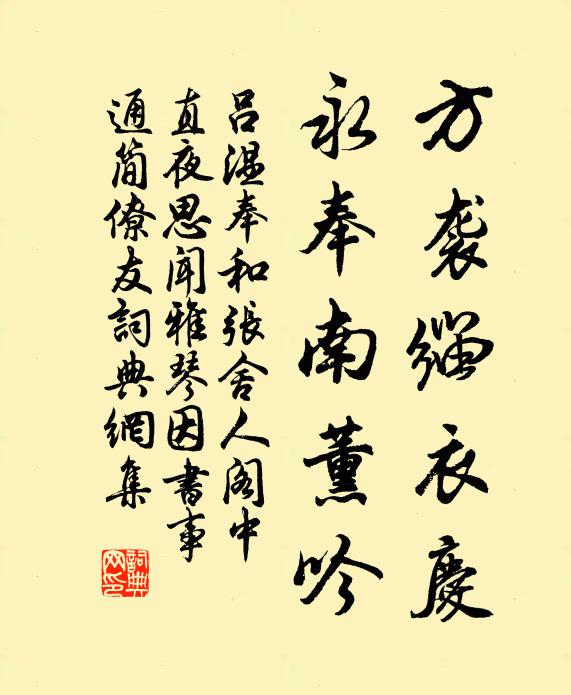 方袭缁衣慶
永奉南薰吟
吕温奉和張舍人阁中
直夜思闻雅琴因書事
通简僚友詞典網集
詞典
网印